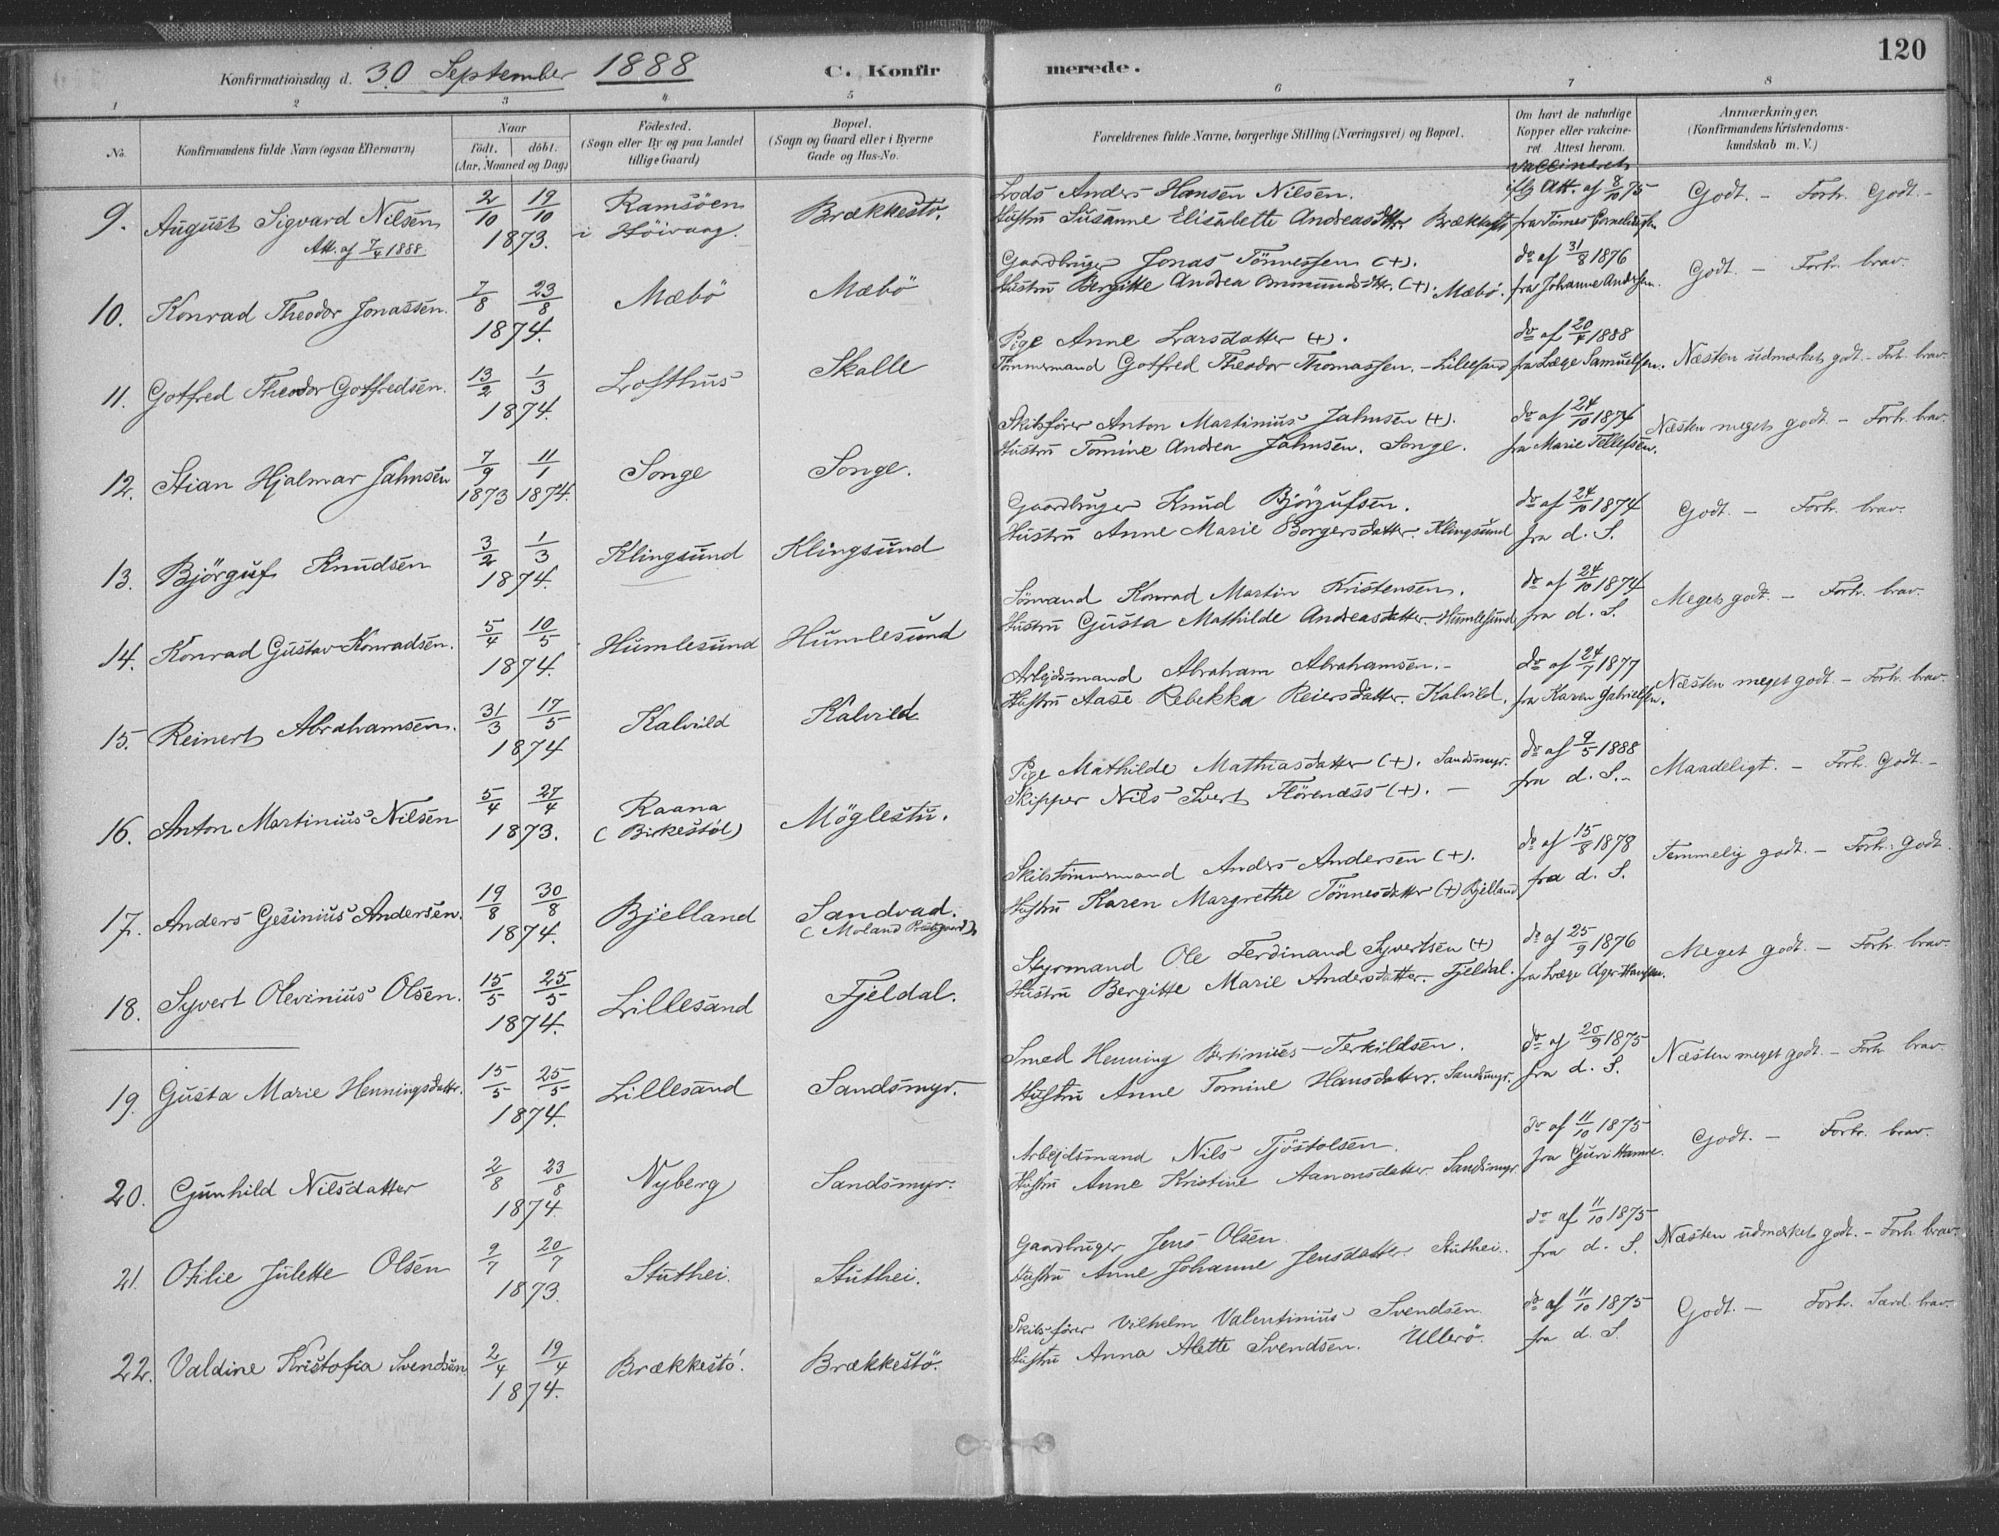 120
Konfirmationsdag d. 30 September 1888 C. Konfirmerede.
1 2 3 4 5 6 7 8
No. Konfirmandens fulde Navn (ogsaa Efternavn)
Naar
født. døbt.
(Aar, Maaned og Dag)
Fødested.
(Sogn eller By og paa Landet
tillige Gaard)
Bopæl.
(Sogn og Gaard eller i Byerne
Gade og Hus-No.
Forældrenes fulde Navne, borgerlige Stilling (Næringsvei) og Bopæl.
Om havt de naturlige
Kopper eller vakcine-
ret. Attest herom.
Anmærkninger.
(Konfirmandens Kristendoms-
kundskab m. V.)
9. August Sigvard Nilsen
Att. af 7/4 1888
2/10 19/10
1873.
Ramsöen
i Höivaag.
Brækkestö.
Lods Anders Hansen Nilsen.
Hustru Susanne Elisabette Andreasdtter Brækkestö
vaccineret
iflg Att. af 8/10 75
fra Tönnes
Godt. — Forh. Godt. -
10. Konrad Theodor Jonassen.
7/8 23/8
1874.
Mæbö
Mæbö
Gaardbruger Jonas Tönnessen (+).
Hustru Bergitte Andrea (+). Mæbö.
do af 31/8 1876
fra Johanne Andersen.
Godt. — Forh. brav.
11. Gotfred Theodor Gotfredsen.
13/2 1/3
1874.
Lofthus
Skalle
Pige Anne Larsdatter (+).
Tömmermand Gotfred Theodor Thomassen. - Lillesand
do af 20/4 1888
fra Læge Samuelsen.
Næsten udmærket godt. - Forh. brav.
12. Stian Hjalmar Jahnsen
7/9 11/1
1873 1874.
Songe
Songe.
Skibsförer Anton Martinius Jahnsen (+).
Hustru Tomine Andrea Jahnsen. Songe.
do af 24/10 1874
fra Marie Tellefsen.
Næsten meget godt - Forh. brav.
13. Björguf Knudsen
3/2 1/3
1874.
Klingsund
Klingsund
Gaardbruger Knud Björgufsen.
Hustru Anne Marie Borgersdatter. Klingsund
do af 24/10 1874
fra d. S.
Godt. — Forh. brav.
14. Konrad Gustav Konradsen.
5/4 10/5
1874.
Humlesund
Humlesund
Sömand Konrad Martin Kristensen.
Hustru Gusta Mathilde Andreasdatter - Humlesund
do af 24/10 1874
fra d. S.
Meget godt. — Forh. brav.
15. Reinert Abrahamsen.
31/3 17/5
1874
Kalvild
Kalvild
Arbejdsmand Abraham Abrahamsen. -
Hustru Aase Rebekka Reiersdatter. Kalvild.
do af 24/7 1877
fra Karen Gabrielsen.
Næsten meget godt. — Forh. brav.
16. Anton Martinius Nilsen
5/4 27/4
1873.
Raana
(Birkestöl)
Möglestu.
Pige Mathilde Mathiasdatter (+). Sandsmyr.
Skipper Nils Ivert Flörenæss (+). —
do af 9/5 1888
fra d. S. -
Maadeligt. — Forh. Godt. -
17. Anders Gesinius Andersen.
19/8 30/8
1874.
Bjelland
Sandvad.
(Moland
Skibstömmermand Anders Andersen (+).
Hustru Karen Margrethe Tönnesdatter (+) Bjelland
do af 15/8 1878
fra d. S.
Temmelig godt. — Forh. Godt.
18. Syvert Olevinius Olsen.
15/5 25/5
1874.
Lillesand
Fjeldal.
Styrmand Ole Ferdinand Syvertsen (+)
Hustru Bergitte Marie Andersdatter. Fjeldal.
do af 25/9 1876
fra Læge Hansen.
Meget godt. — Forh. brav.
19. Gusta Marie Henningsdatter.
15/5 25/5
1874.
Lillesand
Sandsmyr.
Smed Henning Bertinius Terkildsen.
Hustru Anne Tomine Hansdatter. Sandsmyr.
do af 20/9 1875
fra d. S.
Næsten meget godt. - Forh. brav.
20. Gunhild Nilsdatter
2/8 23/8
1874
Nyberg
Sandsmyr.
Arbejdsmand Nils Tjöstolsen.
Hustru Anne Kristine Aanonsdatter. Sandsmyr.
do af 11/10 1875
fra Guri Hamre.
Godt. — Forh. brav.
21. Otilie Julette Olsen
9/7 20/7
1873.
Stuthei.
Stuthei.
Gaardbruger Jens Olsen
Hustru Anne Johanne Jensdatter. Stuthei.
do af 11/10 1875
fra d. S.
Næsten udmærket godt. - Forh. brav.
22. Valdine Kristofia Svendsen
2/4 19/4
1874.
Brækkestö.
Brækkestö.
Skibsförer Vilhelm Valentinius Svendsen.
Hustru Anna Alette Svendsen. Ulerö.
do af 11/10 1875
fra d. S.
Godt. — Forh. Særd. brav.